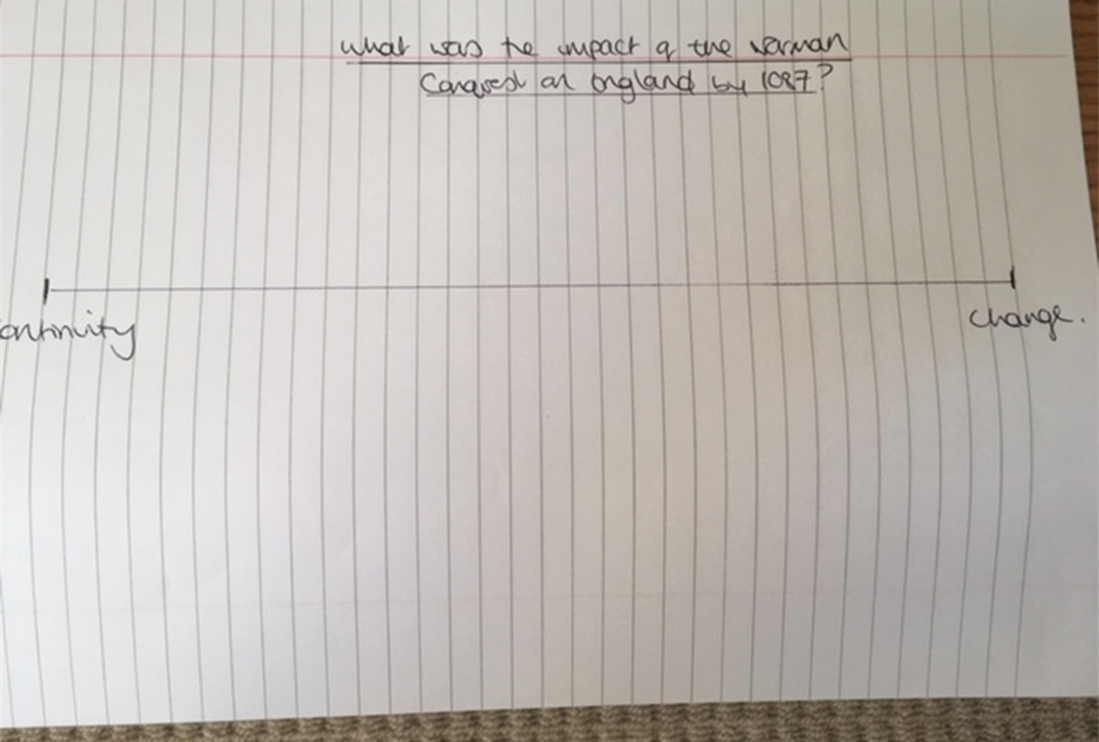 What was the impact of the Norman
Conquest on England by 1087?
ontinuity
change.